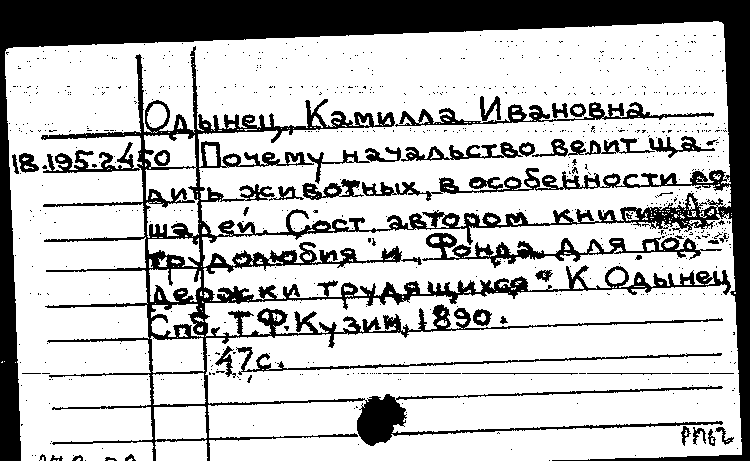 Одынец, Камилла Ивановна
18.195.2.450 Почему начальство велит ща-
дить животных, в особенности ло-
шадей. Сост. автором книги „Дом
трудолюбия" и „Фонда для под-
держки трудящихся". К. Одынец
Спб., Т.Ф. Кузин, 1890.
47 с.